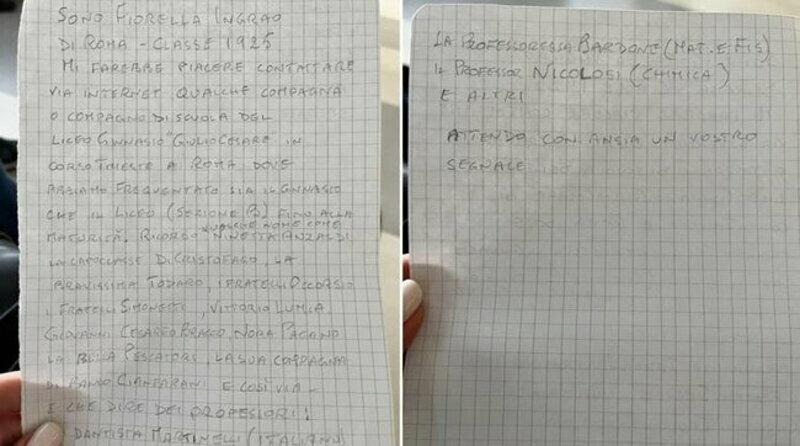 SONO FIORELLA INGRAO
DI ROMA - CLASSE 1925
MI FAREBBE PIACERE CONTATTARE
VIA INTERNET QUALCHE COMPAGNA
O COMPAGNO DI SCUOLA DEL
LICEO GINNASIO "GIULIO CESARE" IN
CORSO TRIESTE A ROMA DOVE
ABBIAMO FREQUENTATO SIA IL GINNASIO
CHE IL LICEO (SEZIONE B) FINO ALLA
QUALCHE NOME COME
MATURITÀ. RICORDO NINETTA ANZALDI
LA CAPOCLASSE DI CRISTOFARO, LA
BRAVISSIMA TODARO, I FRATELLI OCCORSIO
I FRATELLI SIMONETTI, VITTORIO LUMIA,
GIOVANNI CESAREO BRASCO, NORA PAGANO
LA BELLA PESCATORI, LA SUA COMPAGNA
DI BANCO CIANFARANI E COSÌ VIA -
E CHE DIRE DEI PROFESSORI!
DANTISTA MARTINELLI (ITALIANO)
LA PROFESSORESSA BARDONE (MAT. E FIS)
IL PROFESSOR NICOLOSI (CHIMICA)
E ALTRI
ATTENDO CON ANSIA UN VOSTRO
SEGNALE